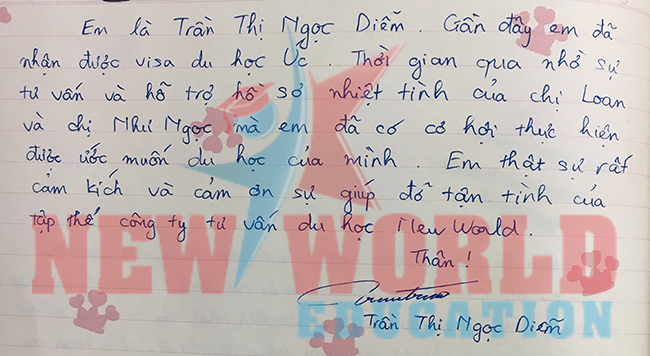 Em là Trần Thị Ngọc Diễm. Gần đây em đã
nhận được visa du học Úc. Thời gian qua nhờ sự
tư vấn và hỗ trợ hồ sơ nhiệt tình của chị Loan
và chị Như Ngọc mà em đã có cơ hội thực hiện
được ước muốn du học của mình. Em thật sự rất
cảm kích và cảm ơn sự giúp đỡ tận tình của
tập thể công ty tư vấn du học New World.
Thân!
Trần Thị Ngọc Diễm
NEW WORLD
EDUCATION